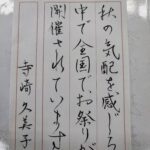 秋の気配を感じる
中で全国で、お祭りが
開催されています
寺崎久美子